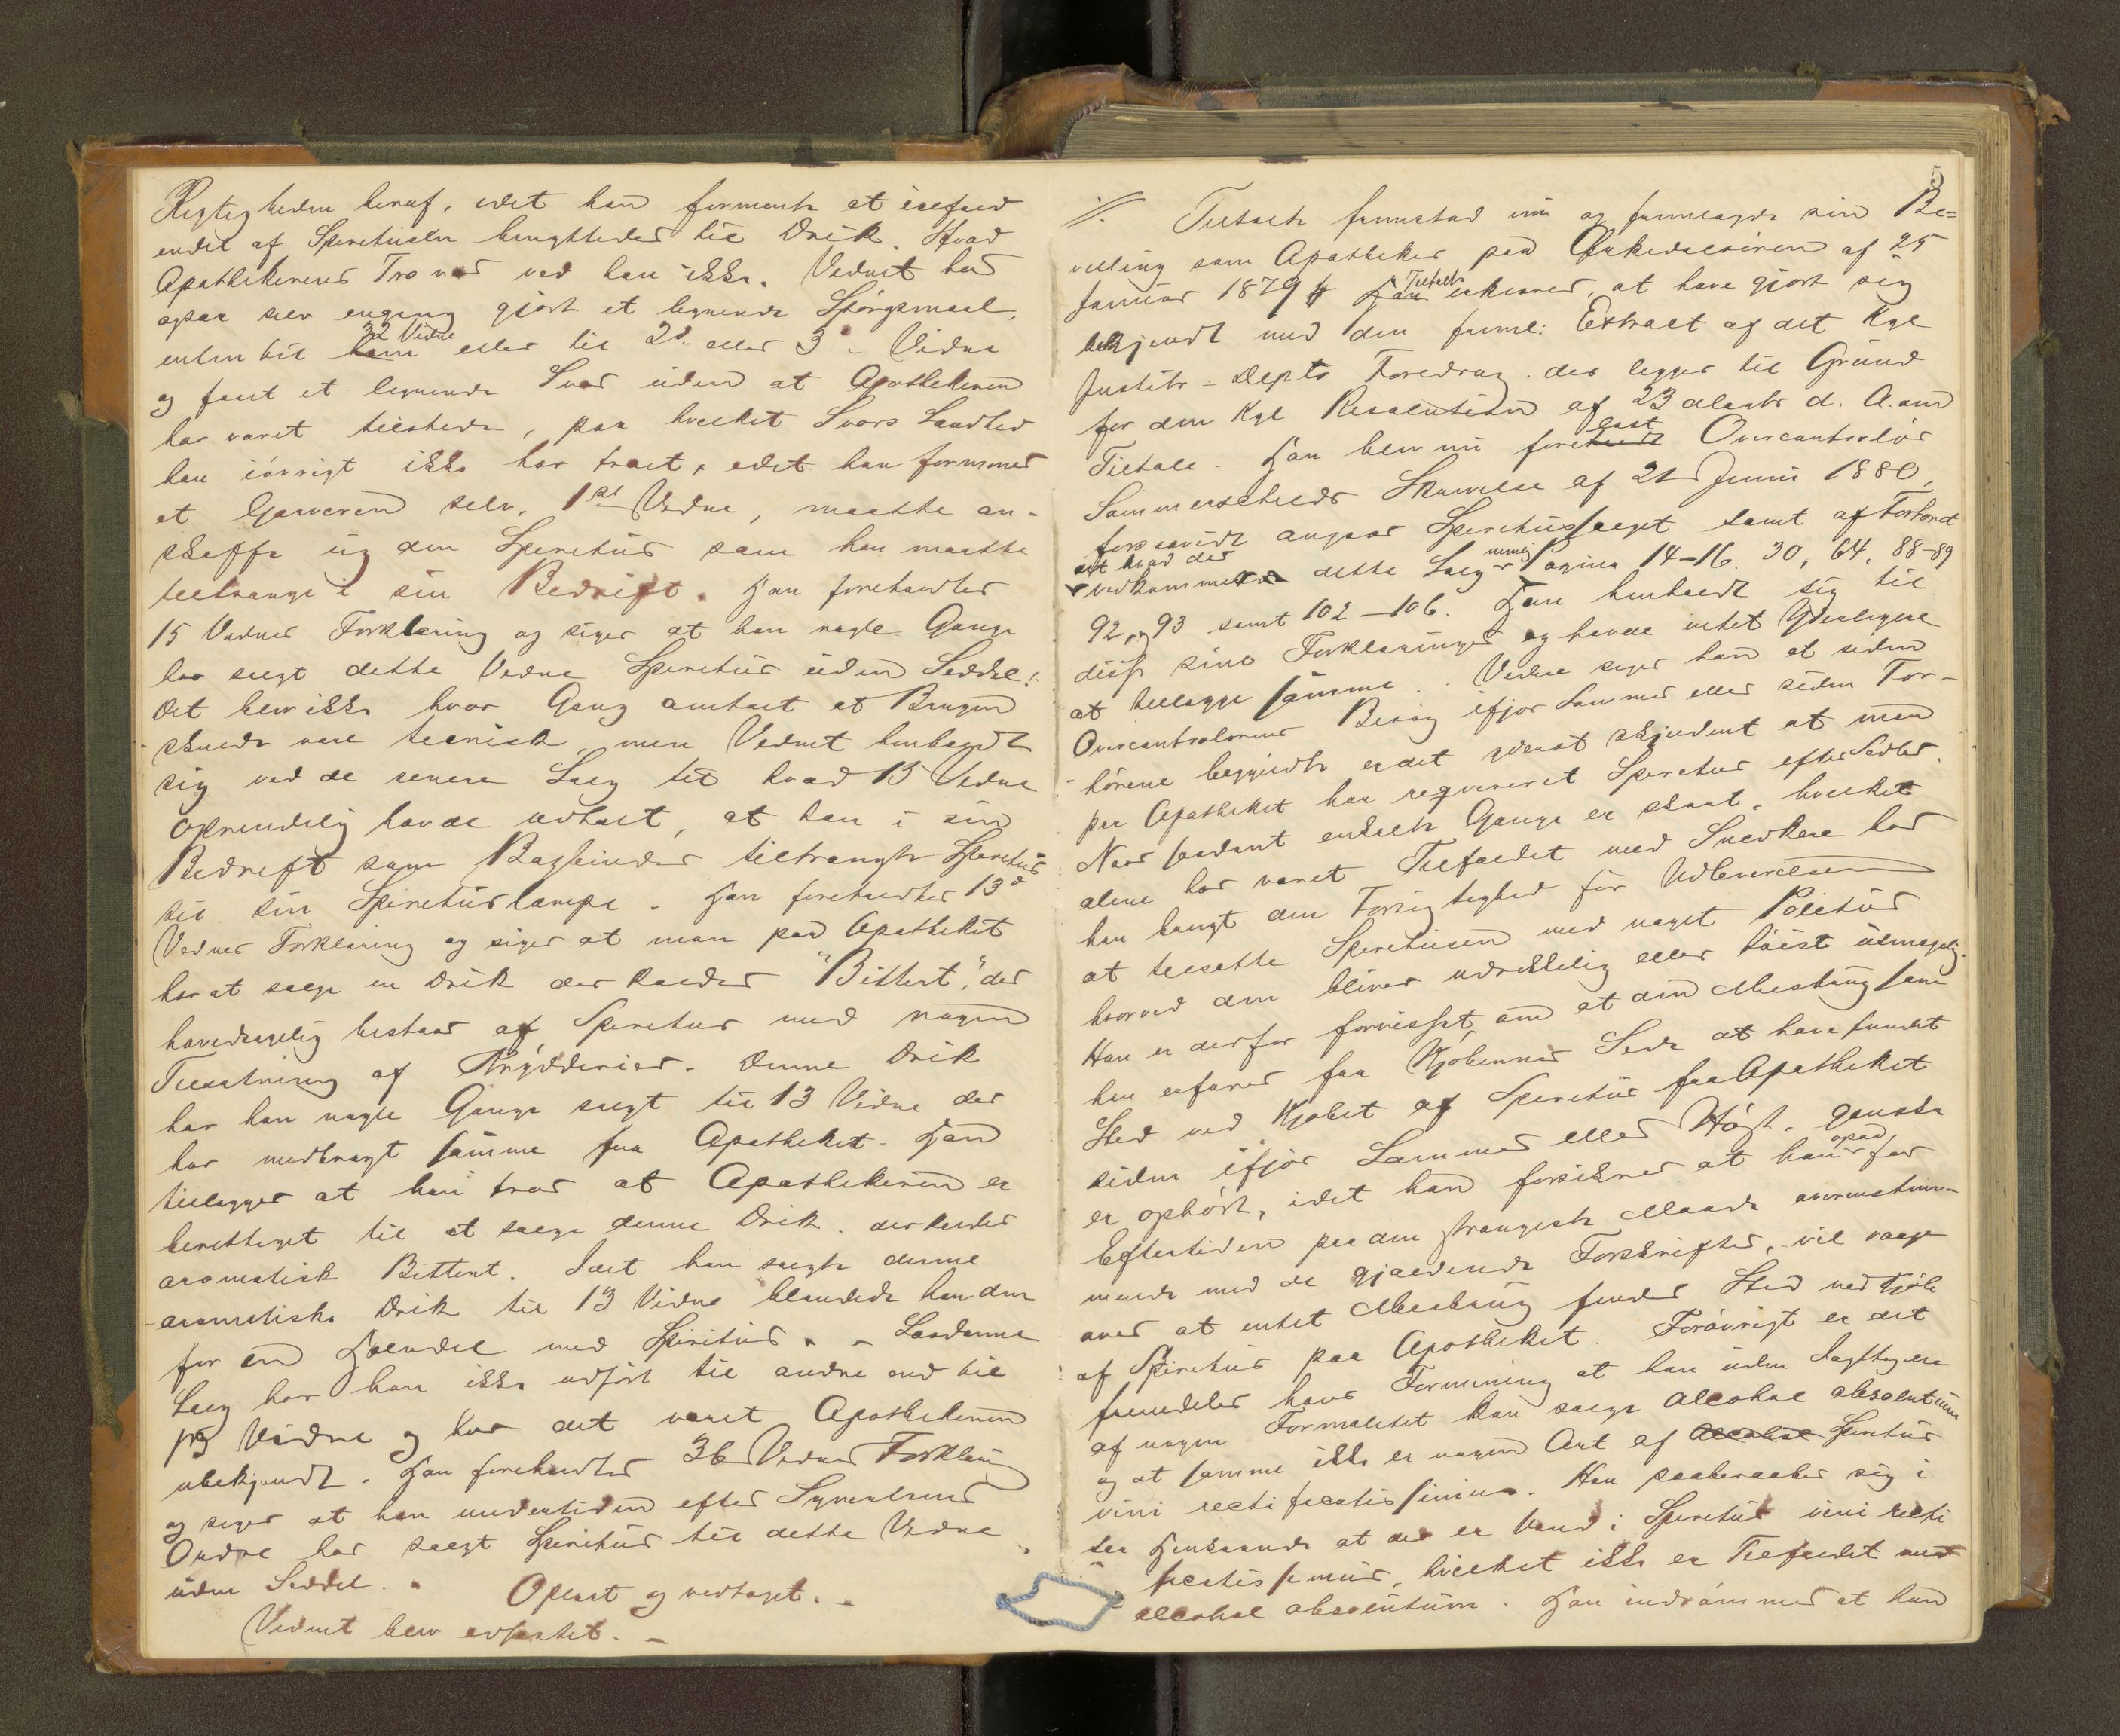 Rigtigheden heraf, idet han formente at ialfald
endel af Spirituseln benyttedes til Drik. Hvad
Apothekerens Tro var ved han ikke. Vidnet har
ogsaa selv engang gjort et lignende Spörgsmaal,
enten til 32 Vidne eller til 2d eller 3d Vidne
og faaet et lignende Svar uden at Apothekeren
har været tilstede, paa hvilket Svars Sandhed
han iövrigt ikke har troet, idet han formener
at Garveren selv, 1ste Vidne, maatte an-
skaffe sig den Spiritus som han maatte
tiltrænge i sin Bedrift. Han foreholdtes
15 Vidnes Forklaring og siger at han nogle Gange
har solgt dette Vidne Spiritus uden Seddel.
Det blev ikke hver Gang omtalt at Brugen
skulde være teknisk, men Vidnet henholdt
sig ved de senere Salg til hvad 15 Vidne
oprindelig havde udtalt, at han i sin
Bedrift som Bogbinder tiltrængte Spiritus
til sin Spirituslampe. Han foreholdtes 13d
Vidnes Forklaring og siger at man paa Apotheket
har at sælge en Drik der kaldes "Bittert", der
hovedsagelig bestaar af Spiritus med nogen
Tilsætning af Krydderier. Denne Drik
har han nogle Gange solgt til 13 Vidne der
har medbragt samme fra Apotheket. Han
tillægger at han tror at Apothekeren er
berettiget til at sælge denne Drik, der kaldes
aromatisk Bittert. Idet han solgte denne
aromatiske Drik til 13 Vidne blandede han den
for en Halvdel med Spiritus. - Saadanne
Salg har han ikke udfört til andre end til
13 Vidne og har det været Apothekeren
ubekjendt. Han foreholdtes 36 Vidnes Forklaring
og siger at han undertiden efter
Ordre har solgt Spiritus til dette Vidne
uden Seddel. Oplæst og vedtaget. -
Vidnet blev edfæstet. -
5
Tiltalte fremstod nu og fremlagde sin Be=
villing som Apotheker paa Orkedalsören af 25
Januar 1879 Tiltalte erklærer, at have gjort sig
bekjendt med den freml: Extract af det Kgl
Justits-Depts Foredrag, der ligger til Grund
for den Kgl Resolution af 23 Marts d. A. om
Tiltale. Han blev nu forelæst Overcontrolör
Sammerschields Skrivelse af 21 Juni 1880,
forsaavidt angaar Spiritussalget samt af Forhöret
alt hvad der vedkommer dette Salg nemlig Pagina 14-16. 30, 64, 88-89
92, og 93 samt 102-106. Han henholdt sig til
disse sine Forklaringer og havde intet Yderligere
at tillægge samme. Videre siger han at siden
Overcontrolörens Besög ifjor Sommer eller siden For-
hörene begyndte er det yderst skjeldent at man
paa Apotheket har reqvireret Spiritus efter Sedler.
Naar saadant enkelte Gange er skeet, hvilket
alene har været Tilfældet med Snedkere har
han brugt den Forsigtighed för Udleverelsen
at tilsætte Spiritusen med noget Politur
hvorved den bliver udrikkelig eller höist usmagelig.
Han er derfor forvisset om at den Misbrug som
han erfarer fra Kjöbernes Side at have fundet
Sted ved Kjöbet af Spiritus fra Apotheket
siden ifjor Sommer eller Höst, ganske
er ophört, idet han forsikrer at han opad for
Eftertiden paa den strengeste Maade overensstem-
mende med de gjældende Forskrifter, vil vaage
over at intet Misbrug finder Sted ved Kjöb
af Spiritus paa Apotheket. Forövrigt er det
fremdeles hans Formening at han uden Iagttagelse
af nogen Formalitet kan sælge alcohol absolutum
og at samme ikke er nogen Art af Alcohol Spiritus
vini rectificatissimus. Han paaberaaber sig i
saa Henseende at der er Vand i Spiritus vini recti
ficatissimus, hvilket ikke er Tilfældet med
alcohol absolutum. Han indrömmer at han